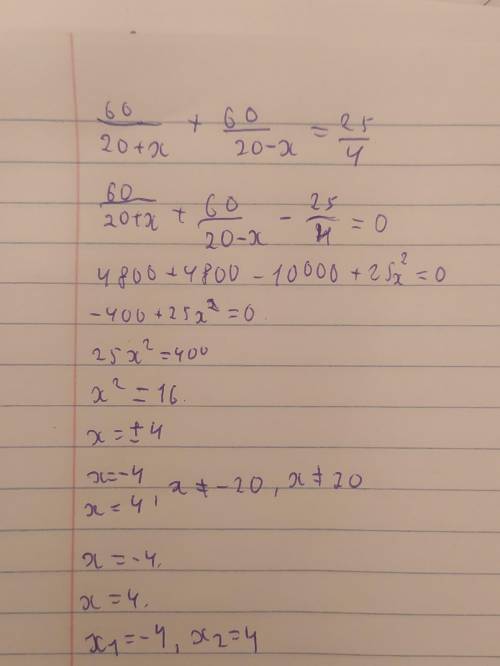 60/20+x + 60/20-x = 25/4
60/20+x + 60/20-x - 25/4 = 0
4800 + 4800 - 10000 + 25x² = 0
-400 + 25x² = 0
25x² = 400
x² = 16.
x = ± 4
x = -4
x = 4, x ≠ -20, x ≠ 20
x = -4.
x = 4.
x₁ = -4, x₂ = 4